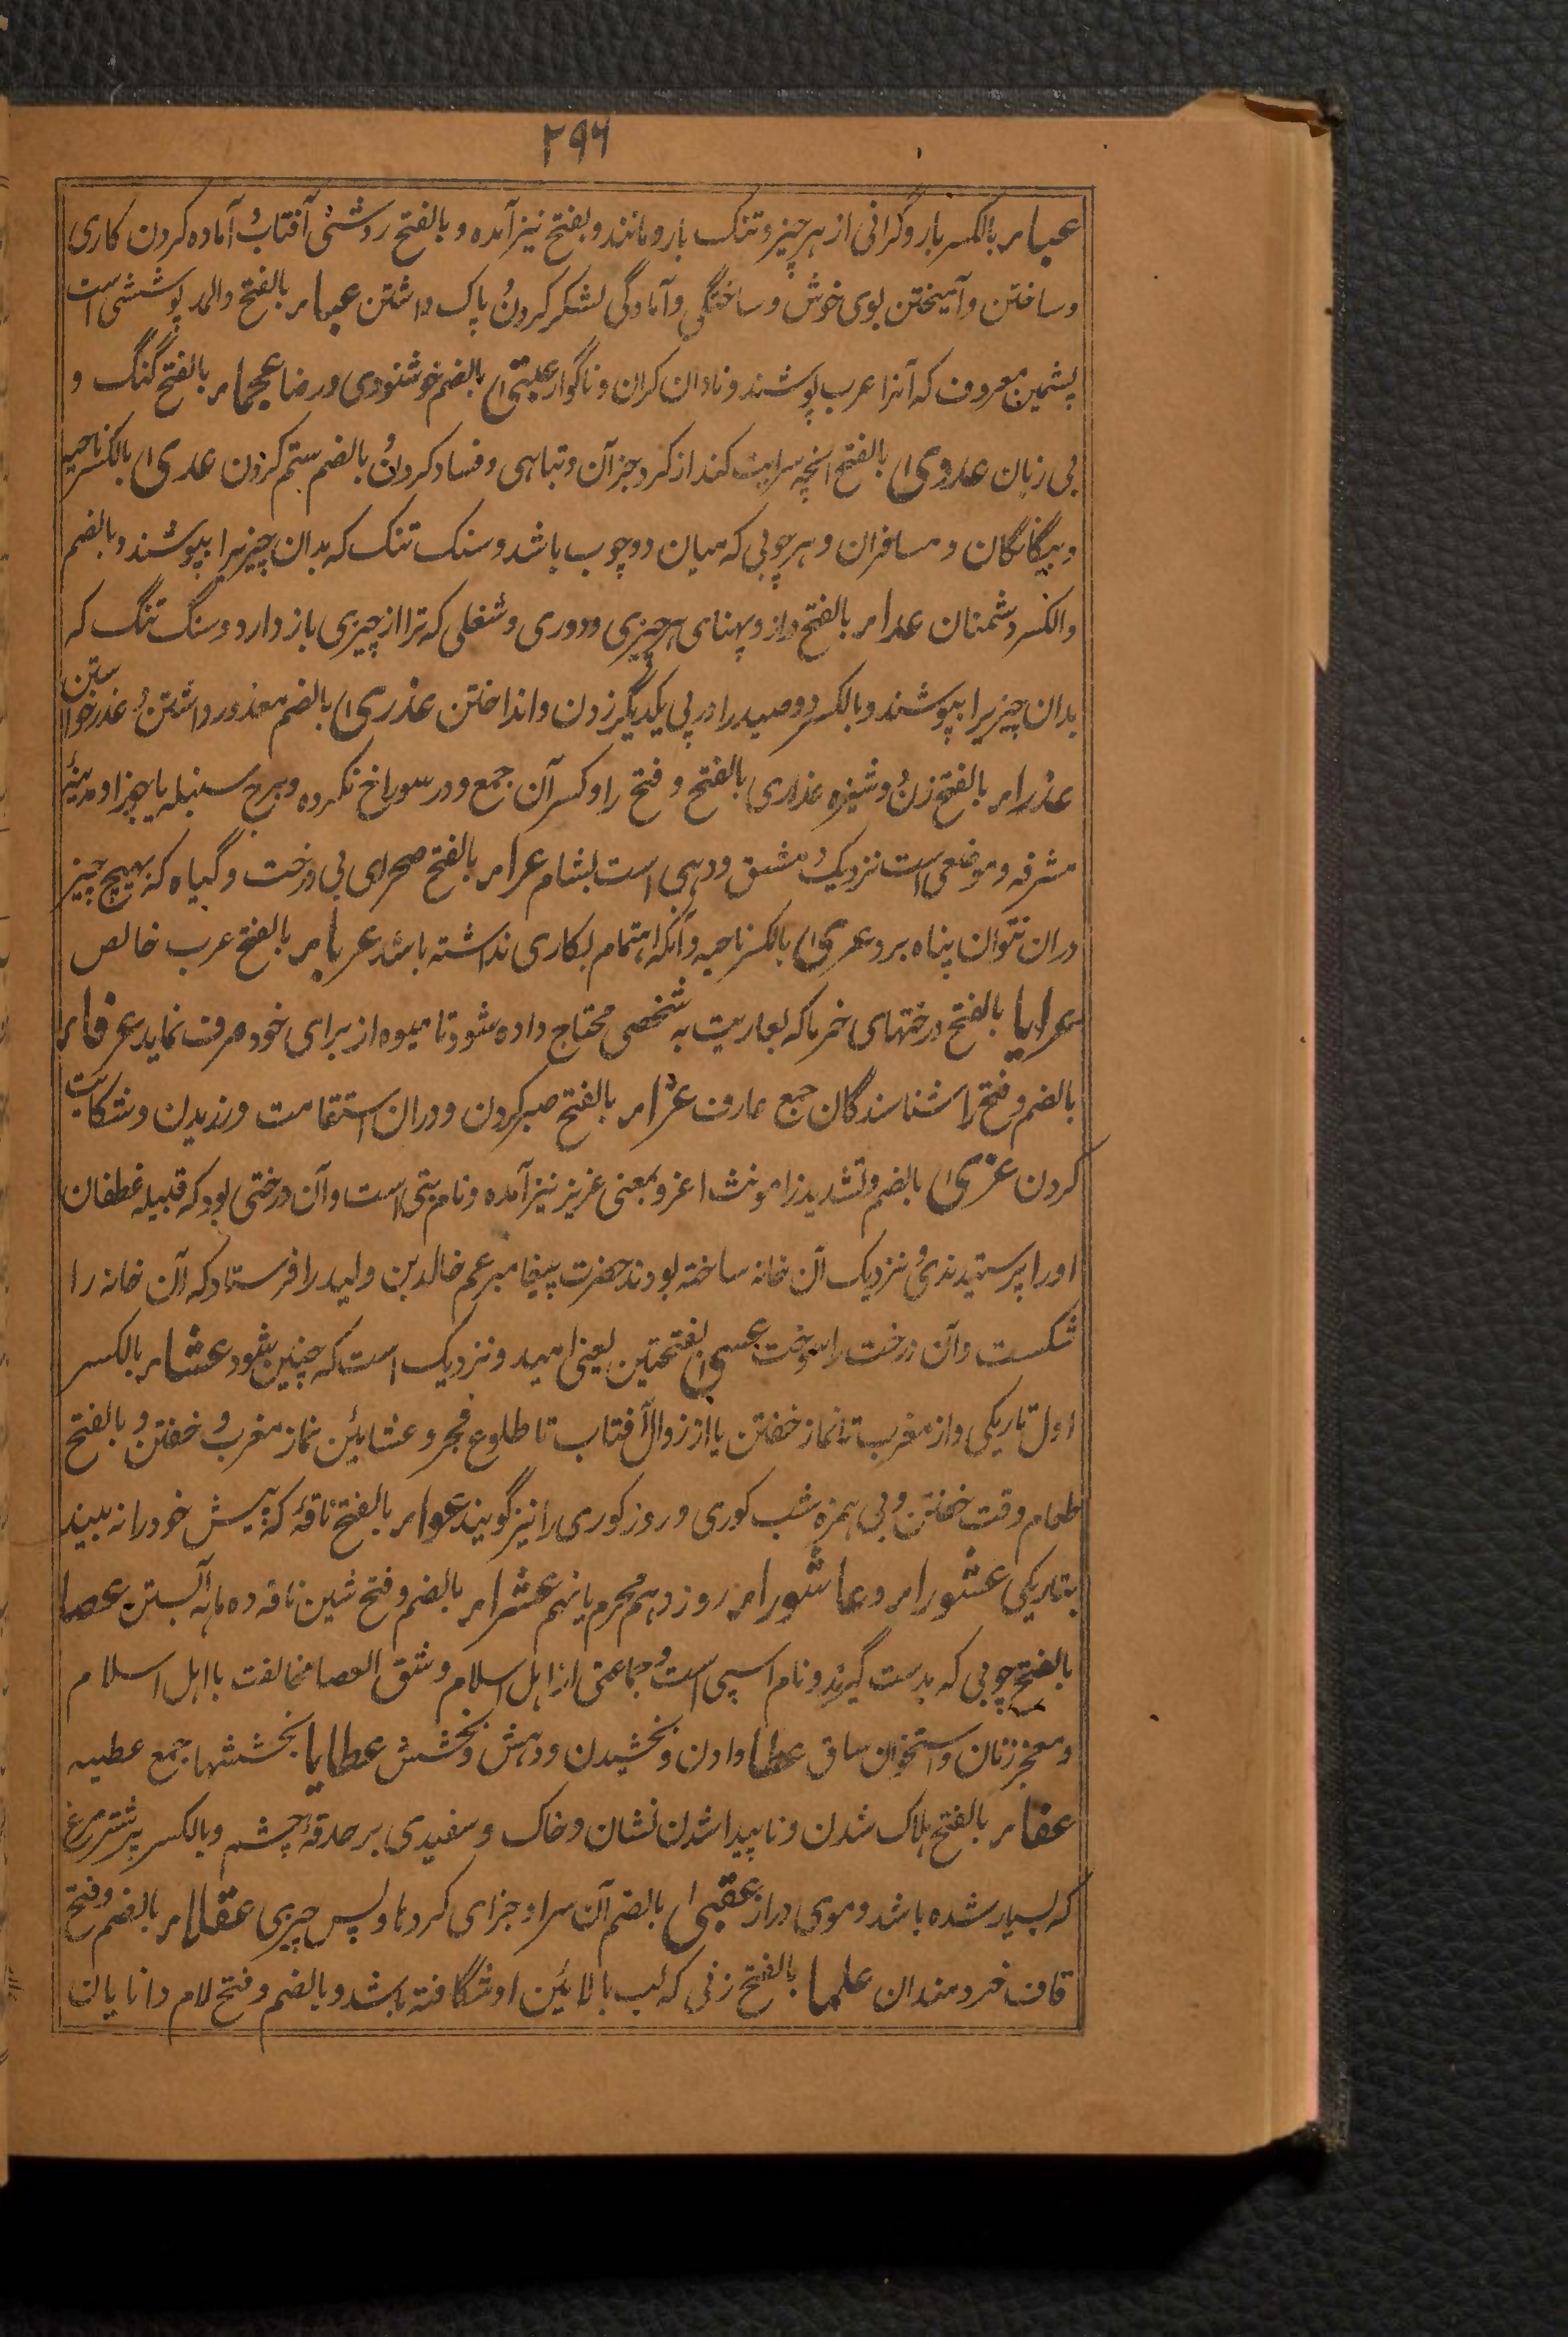 ۲۹۶
عباء بالکسر بار و گرانی از هر چیز و تنگ بار و مانند و بفتح نیز آمده و بالفتح روشنی آفتاب و آماده کردن کاری
و ساختن و آمیختن بوی خوش و ساختگی و آمادگی لشکر کردن و پاک داشتن عباء بالفتح والمد پوششی است
پشمین معروف که آنرا عرب پوشند و نادان گران و ناگوار عتبی بالضم خوشنودی و رضا عجماء بالفتح گنگ و
بی زبان عدوی بالفتح آنچه سرایت کند از کرد جز آن و تباهی و فساد کردن و بالضم ستم کردن عدی بالکسر ناحیه
و بیگانگان و مسافران و هر چوبی که میان دو چوب باشد و سنک تنک که بدان چیزیرا بپوشند و بالضم
والکسر دشمنان عداء بالفتح دراز و پهنای هر چیزی و دوری و شغلی که ترا از چیزی باز دارد و سنگ تنگ که
بدان چیزیرا بپوشند و بالکسر دو صید را در پی یکدیگر زدن و انداختن عذری بالضم معذور داشتن و عذر خواستن
عذراء بالفتح زن دوشیزه عذاری بالفتح و فتح را و کسر آن جمع و در سوراخ نکرده و برج سنبله یا جوزا و مدینهٔ
مشرفه و موضعی است نزدیک دمشق و دهی است بشام عراء بالفتح صحرای بی درخت و گیاه که بهیچ چیز
دران نتوان پناه برد عری بالکسر ناحیه و آنکه اهتمام بکاری نداشته باشد عرباء بالفتح عرب خالص
عرایا بالفتح درختهای خرما که بعاریت به شخصی محتاج داده شود تا میوه از برای خود صرف نماید عرفاء
بالضم و فتح را شناسندگان جمع عارف عزاء بالفتح صبر کردن و دران استقامت ورزیدن و شکایت
کردن عزی بالضم و تشدید زا مونث اعز و بمعنی عزیز نیز آمده و نام بتی است و آن درختی بود که قبیله غطفان
او را پرستیدندی و نزدیک آن خانه ساخته بودند حضرت پیغامبر عم خالد بن ولید را فرستاد که آن خانه را
شکست و آن درخت را سوخت عسی بفتحتین یعنی امید و نزدیک است که چنین شود عشاء بالکسر
اول تاریکی و از مغرب تا نماز خفتن یا از زوال آفتاب تا طلوع فجر و عشایین نماز مغرب و خفتن و بالفتح
طعام وقت خفتن و بی همزه شب کوری و روز کوری را نیز گویند عشواء بالفتح ناقه که پیش خود را نه بیند
بتاریکی عشوراء و عاشوراء روز دهم محرم یا نهم عشراء بالضم و فتح شین ناقه ده ماهه آبستن عصا
بالفتح چوبی که بدست گیرند و نام اسپی است و جماعتی از اهل اسلام و شق العصا مخالفت با اهل اسلام
و معجر زنان و استخوان ساق عطا دادن و بخشیدن و دهش و بخشش عطایا بخششها جمع عطیه
عفاء بالفتح هلاک شدن و ناپیدا شدن نشان و خاک و سفیدی بر حدقهٔ چشم و بالکسر پر شترمرغ
که بسیار شده باشد و موی دراز عقبی بالضم آن سرا و جزای کردنا و پس چیزی عقلاء بالضم و فتح
قاف خردمندان علما بالفتح زنی که لب بالائین او شگافته باشد و بالضم و فتح لام دانایان